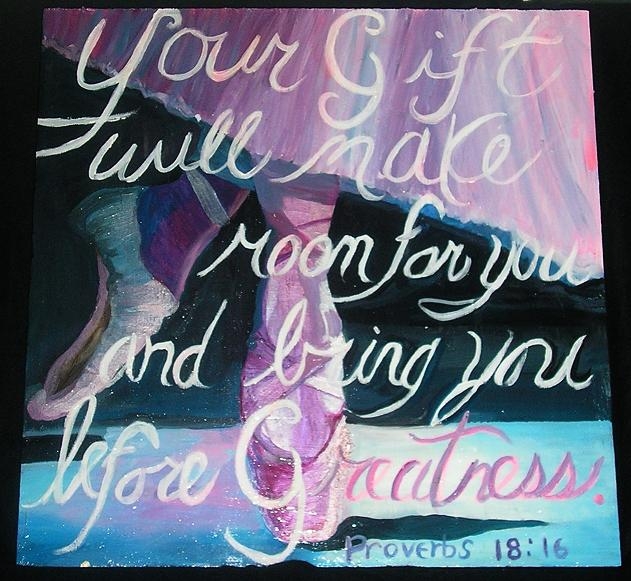 Your Gift
will make
room for you
and bring you
before Greatness.
Proverbs 18:16